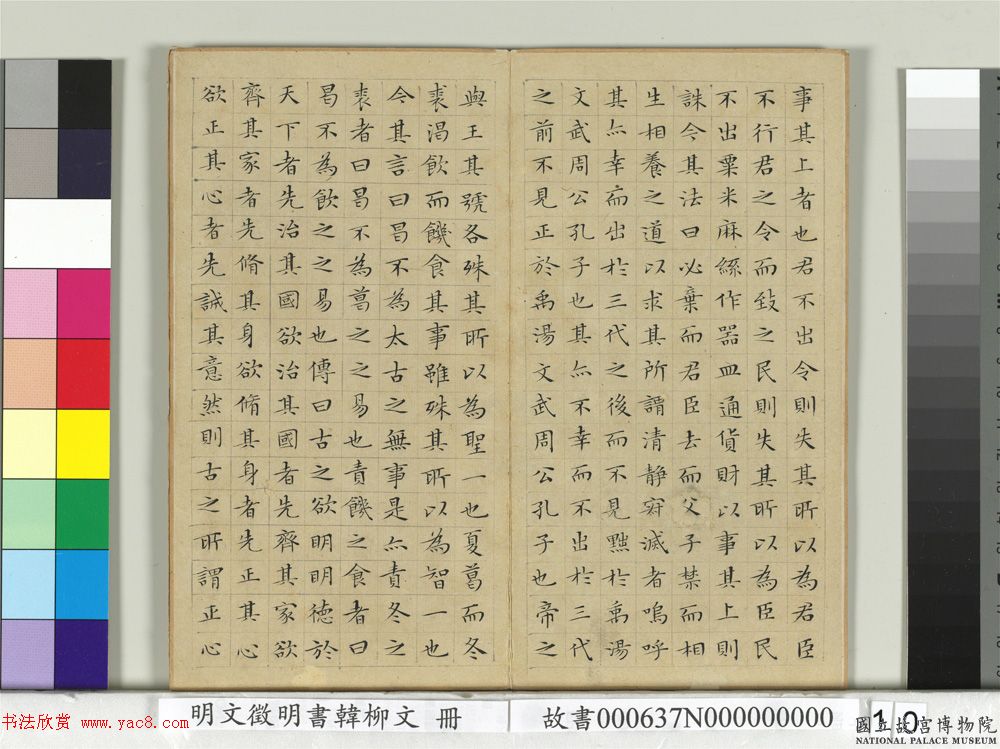 事其上者也君不出令則失其所以為君臣
不行君之令而致之民則失其所以為臣民
不出粟米麻絲作器皿通貨財以事其上則
誅今其法曰必棄而君臣去而父子禁而相
生相養之道以求其所謂清静寂滅者嗚呼
其亦幸而出於三代之後而不見黜於禹湯
文武周公孔子也其亦不幸而不出於三代
之前不見正於禹湯文武周公孔子也帝之
與王其號各殊其所以為聖一也夏葛而冬
裘渴飲而饑食其事雖殊其所以為智一也
今其言曰曷不為太古之無事是亦責冬之
裘者曰曷不為葛之之易也責饑之食者曰
曷不為飲之之易也傳曰古之欲明明德於
天下者先治其國欲治其國者先齊其家欲
齊其家者先脩其身欲脩其身者先正其心
欲正其心者先誠其意然則古之所謂正心
明文徵明書韓柳文 冊
故書000637N000000000
10
书法欣赏 www.yac8.com
國立故宮博物院
NATIONAL PALACE MUSEUM